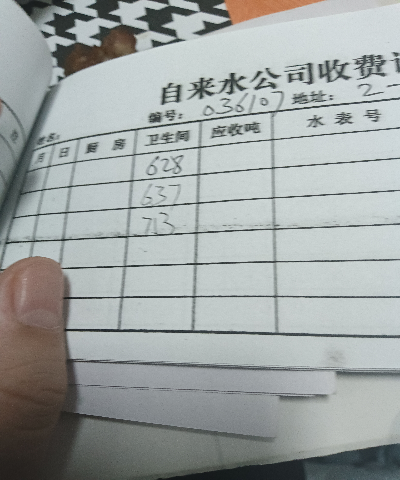 自来水公司收费
编号: 036107 地址: 2-
姓名:
月 日 厨 房 卫生间 应收吨 水 表 号
628
637
713